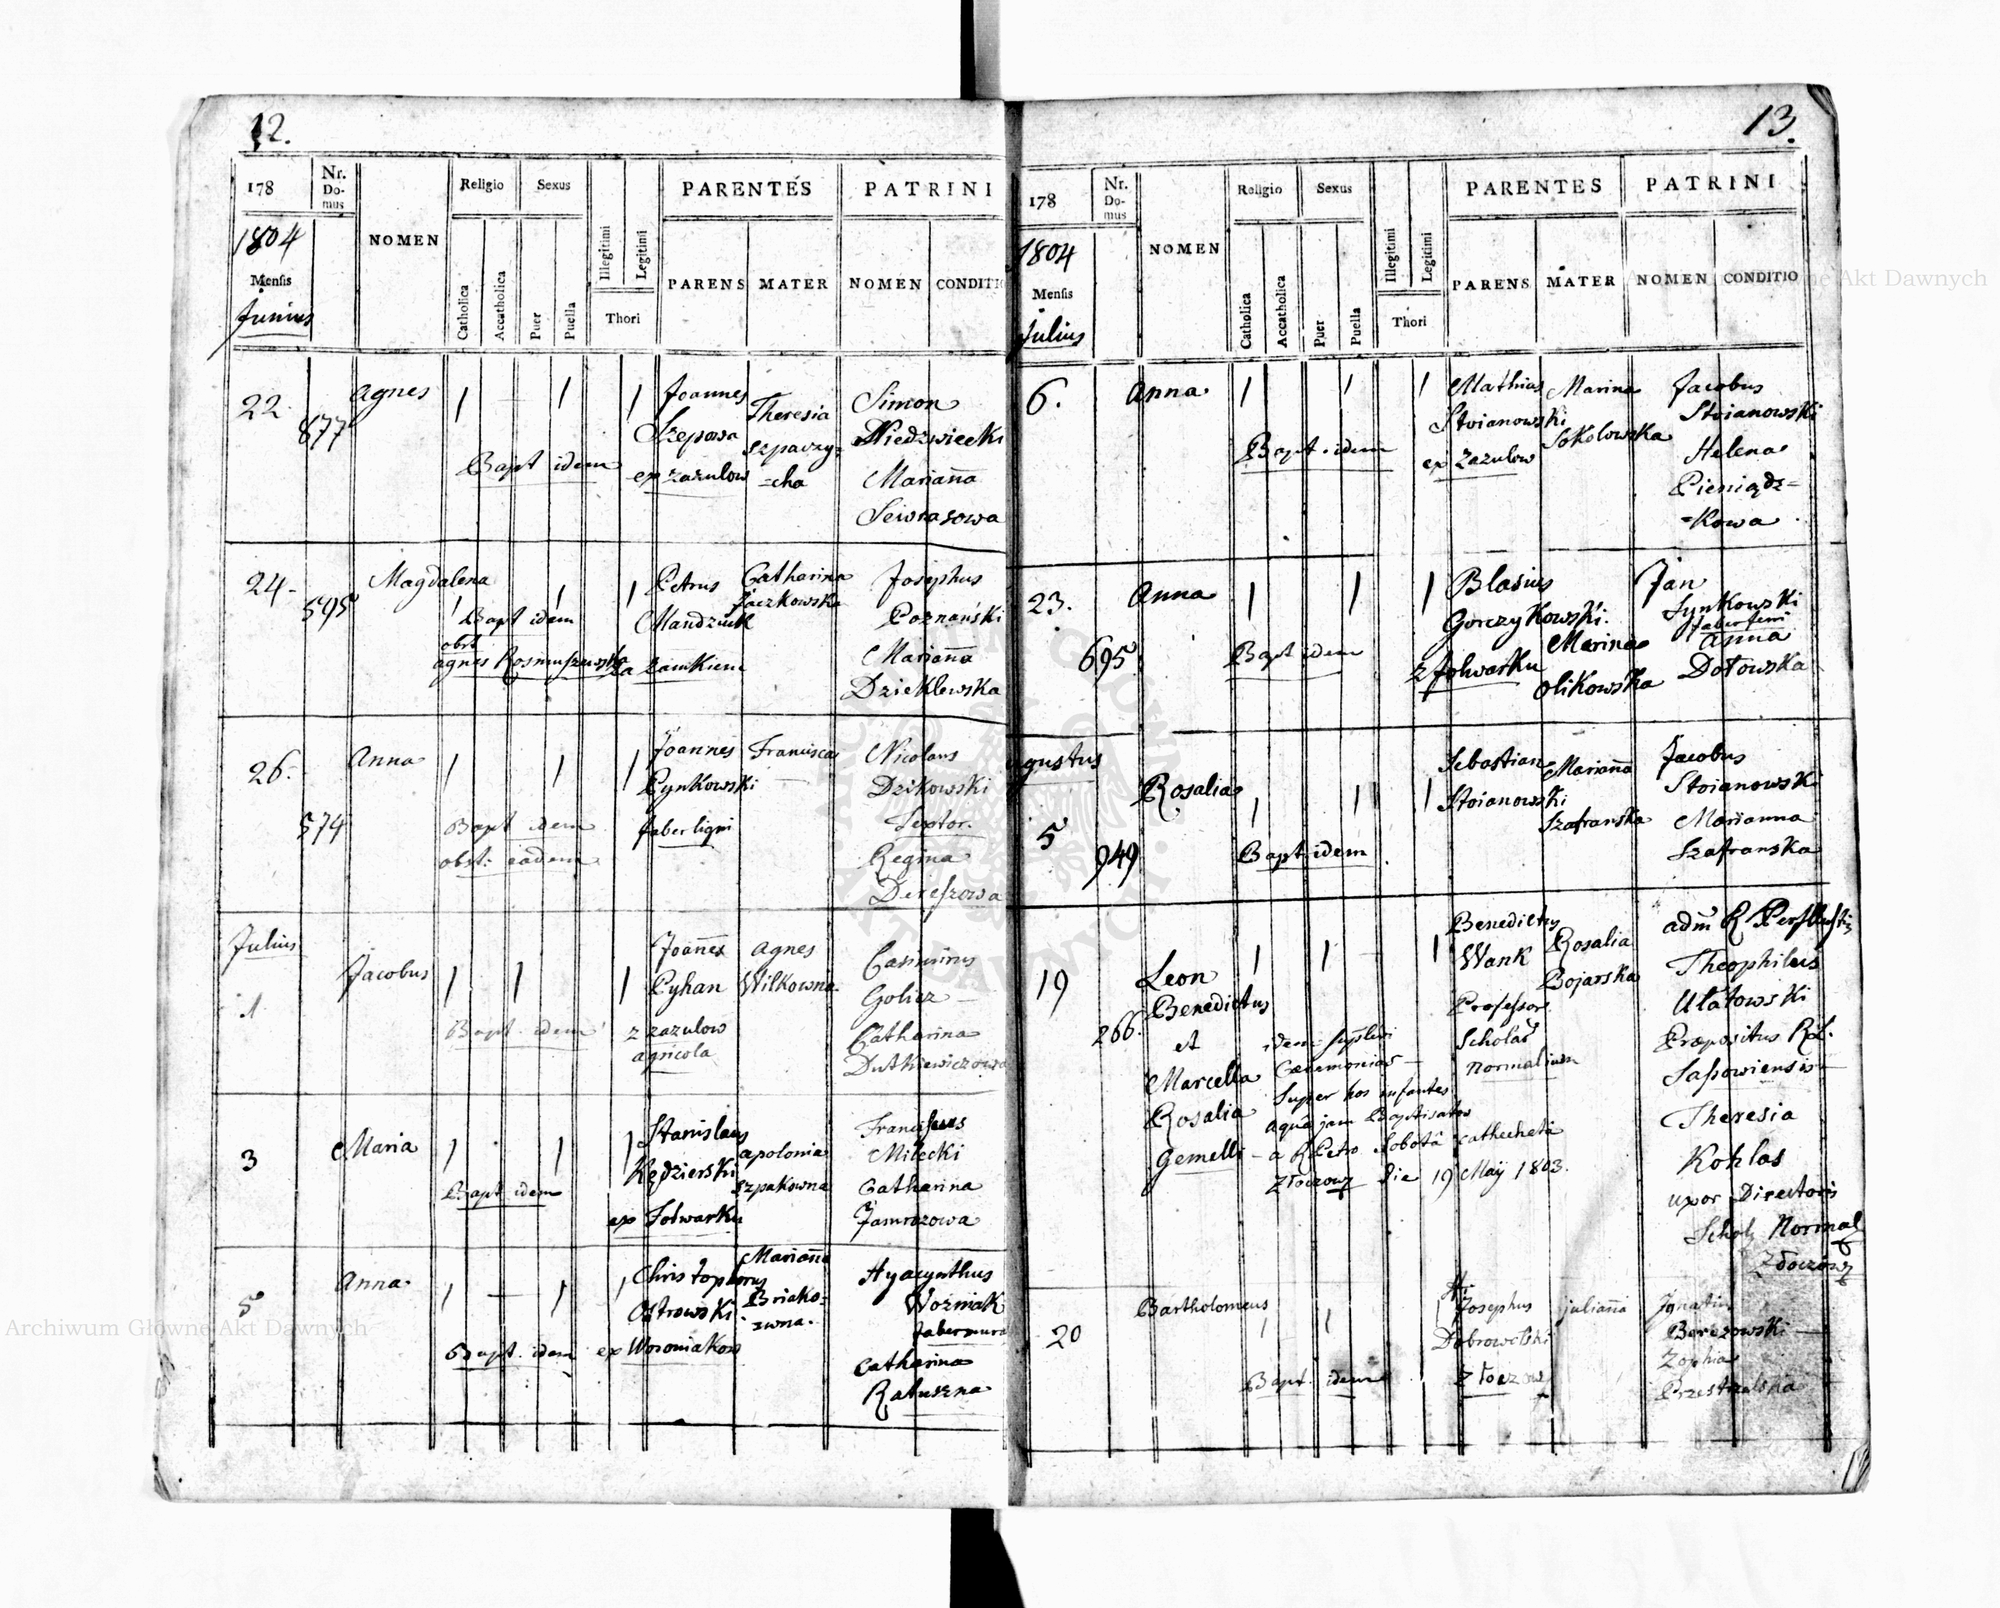 12.
178
Nr. Domus
NOMEN
Religio
Sexus
Catholica
Accatholica
Puer
Puella
Illegitimi
Legitimi
Thori
PARENTES
PARENS
MATER
PATRINI
NOMEN
CONDITIO
1804
Mensis
Junius
22.
877
Agnes
Bapt idem
Joannes
Szepowa
ex Zazulow
Theresia
Szpaczy=
=cha
Simon
Niedzwiecki
Marianna
24.
595
Magdalena
Bapt idem
obst
Agnes
Petrus
Mandziuk
za zamkiem
Catharina
Jaczkowska
Josephus
Poznański
Marianna
Dzieklewska
26.
574
Anna
Bapt idem
obst: eadem
Joannes
Pynkowski
faber ligni
Francisca
Nicolaus
Dzikowski
Textor.
Regina
Dereszowa
Julius
1
Jacobus
Bapt. idem
Joannes
Pyhan
z zazulow
agricola
Agnes
Wilkowna
Casimirus
Golicz
Catharina
Dutkiewiczowa
3
Maria
Bapt idem
Stanislaus
Kędzierski
ex Folwarku
Apolonia
Szpakowna
Franciscus
Milecki
Catharina
Jamrozowa
5
Anna
Bapt. idem
Christophorus
Ostrowski
ex Woroniakow
Marianna
Briako=
zwna.
Hyacynthus
Wozniak
faber mura
Catharina
Ratuszna
13.
178
Nr. Domus
NOMEN
Religio
Sexus
Catholica
Accatholica
Puer
Puella
Illegitimi
Legitimi
Thori
PARENTES
PARENS
MATER
PATRINI
NOMEN
CONDITIO
1804
Mensis
Julius
6.
Anna
Bapt. idem
Mathias
Stoianowski
ex Zazulow
Marina
Sokolowska
Jacobus
Stoianowski
Helena
Pieniądz=
=Kowa
23.
695
Anna
Bapt idem
Blasius
Gorczykowski.
z folwarku
Marina
Olikowska
Jan
Synkowski
faber ferri
Anna
Dołowska
ugustus
5
949
Rosalia
Bapt idem
Sebastian
Stoianowski
Marianna
Szafranska
Jacobus
Stoianowski
Marianna
Szafranska
19
266.
Leon
Benedictus
et
Marcella
Rosalia
Gemelli
idem suppleri
Cæremonias
Super hos infantes
aquâ jam Baptisatos
a R Petro Sobotâ catechetâ
Złoczow die 19 May 1803.
Benedictus
Wank
Professor
Scholar
normalium
Rosalia
Bojarska
Theophilus
Ulatowski
Præpositus
Sassowiensis
Theresia
Kohlos
uxor Directoris
Schol Normal
Złoczow
20
Bartholomeus
Bapt. idem
Josephus
Dobrowolski
Złoczow
julianna
Ignatius
Berezowski
Zophia
Przestrzelska
Archiwum Główne Akt Dawnych